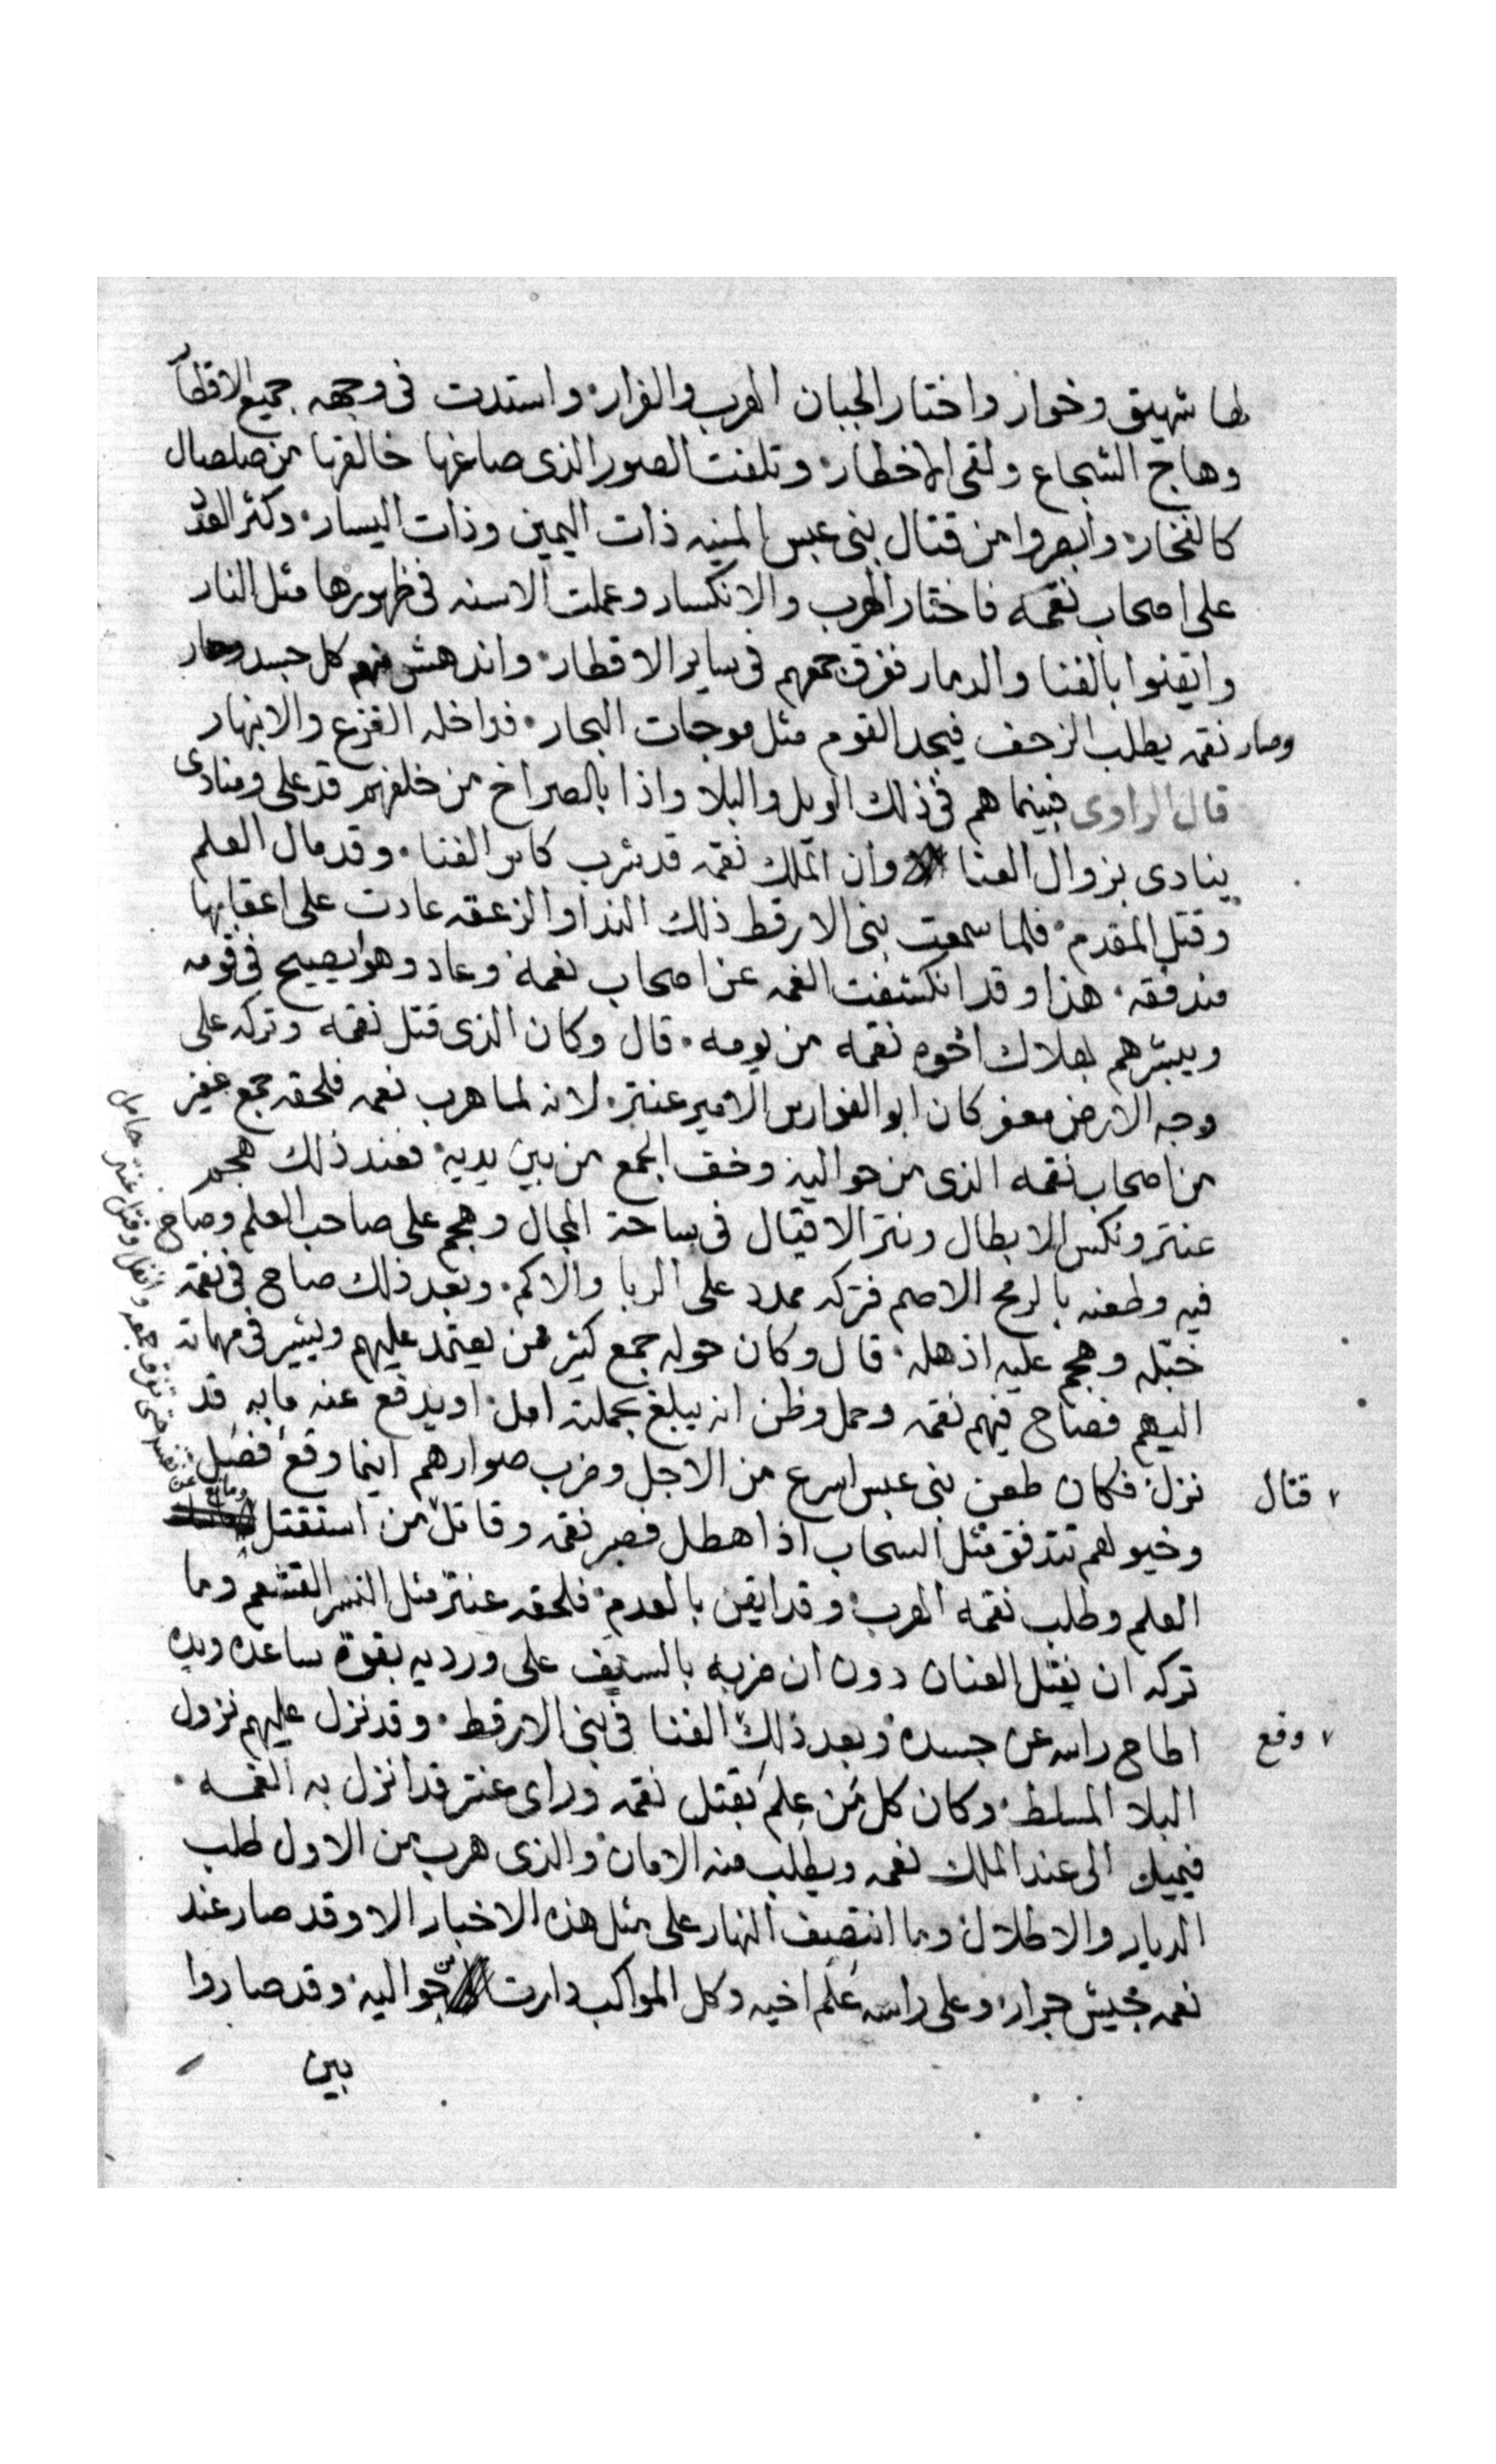 لها شهيق وخوار واختار الجبان الهرب والفرار، واستدت فى وجهه جميع الاقطار
وهاج الشجاع ولقى الاخطار، وتلفت الصور الذى صاغها خالقها من صلصال
كالفخار، وابصروا من قتال بنى عبس المنيه ذات اليمين وذات اليسار، وكثر العدد
على اصحاب نقمه فاختار الهرب والانكسار وعملت الاسنه فى ظهورها مثل النار
وايقنوا بالفنا والدمار فتفرق جمعهم فى ساير الاقطار، واندهش منهم كل جسد وحار
وصار نقمه يطلب الزحف فيجد القوم مثل موجات البحار، فداخله الفزع والانبهار
قال الراوى فبينما هم فى ذلك الويل والبلا واذا بالصراخ من خلفهم قد على ومنادى
ينادى بزوال العنا وان الملك نقمه قد شرب كاس الفنا، وقد مال العلم
وقتل المقدم، فلما سمعت بنى الارقط ذلك الندا والزعقه عادت على اعقابها
مندفقه، هذا وقد انكشفت الغمه عن اصحاب نعمه وعاد وهو يصيح فى قومه
ويبشرهم بهلاك اخوه نقمه من يومه، قال وكان الذى قتل نقمه وتركه على
وجه الارض معفر كان ابو الفوارس الامير عنتر، لانه لما هرب نعمه فلحقه جمع غفير
من اصحاب نقمه الذى من حواليه وخف الجمع من بين يديه، فعند ذلك هجم
عنتر ونكس الابطال ونثر الاقيال فى ساحة المجال وهجم على صاحب العلم وصاح
فيه وطعنه بالرمح الاصم فتركه ممدد على الربا والاكم، وبعد ذلك صاح فى نقمه
خبله وهجم عليه اذهله، قال وكان حوله جمع كثير ممن يعتمد عليهم ويشير فى مهماته
اليهم فصاح فيهم نقمه وحمل وظن انه يبلغ بحملته امل، او يدفع عنه ما به قد
نزل، فكان طعن بنى عبس اسرع من الاجل وضرب صوارمهم اينما وقع فصل
قتال
وخيولهم تتدفق مثل السحاب اذا هطل فصبر نقمه وقاتل من استقتل
العلم وطلب نقمه الهرب، وقد ايقن بالعدم، فلحقه عنتر مثل النسر القشعم وما
تركه ان يفتل العنان دون ان ضربه بالسيف على ورديه بقوة ساعده ويده
اطاح راسه عن جسده، وبعد ذلك الفنا فى بنى الارقط، وقد نزل عليهم نزول
وقع
البلا المسلط، وكان كل من علم بقتل نقمه وراى عنتر قد انزل به الغمه،
فيميل الى عند الملك نعمه ويطلب منه الامان، والذى هرب من الاول طلب
الديار والاطلال، وما انتصف النهار على مثل هذه الاخبار الا وقد صار عند
نعمه جيش جرار، وعلى راسه علم اخيه وكل المواكب دارت حواليه، وقد صاروا
بين